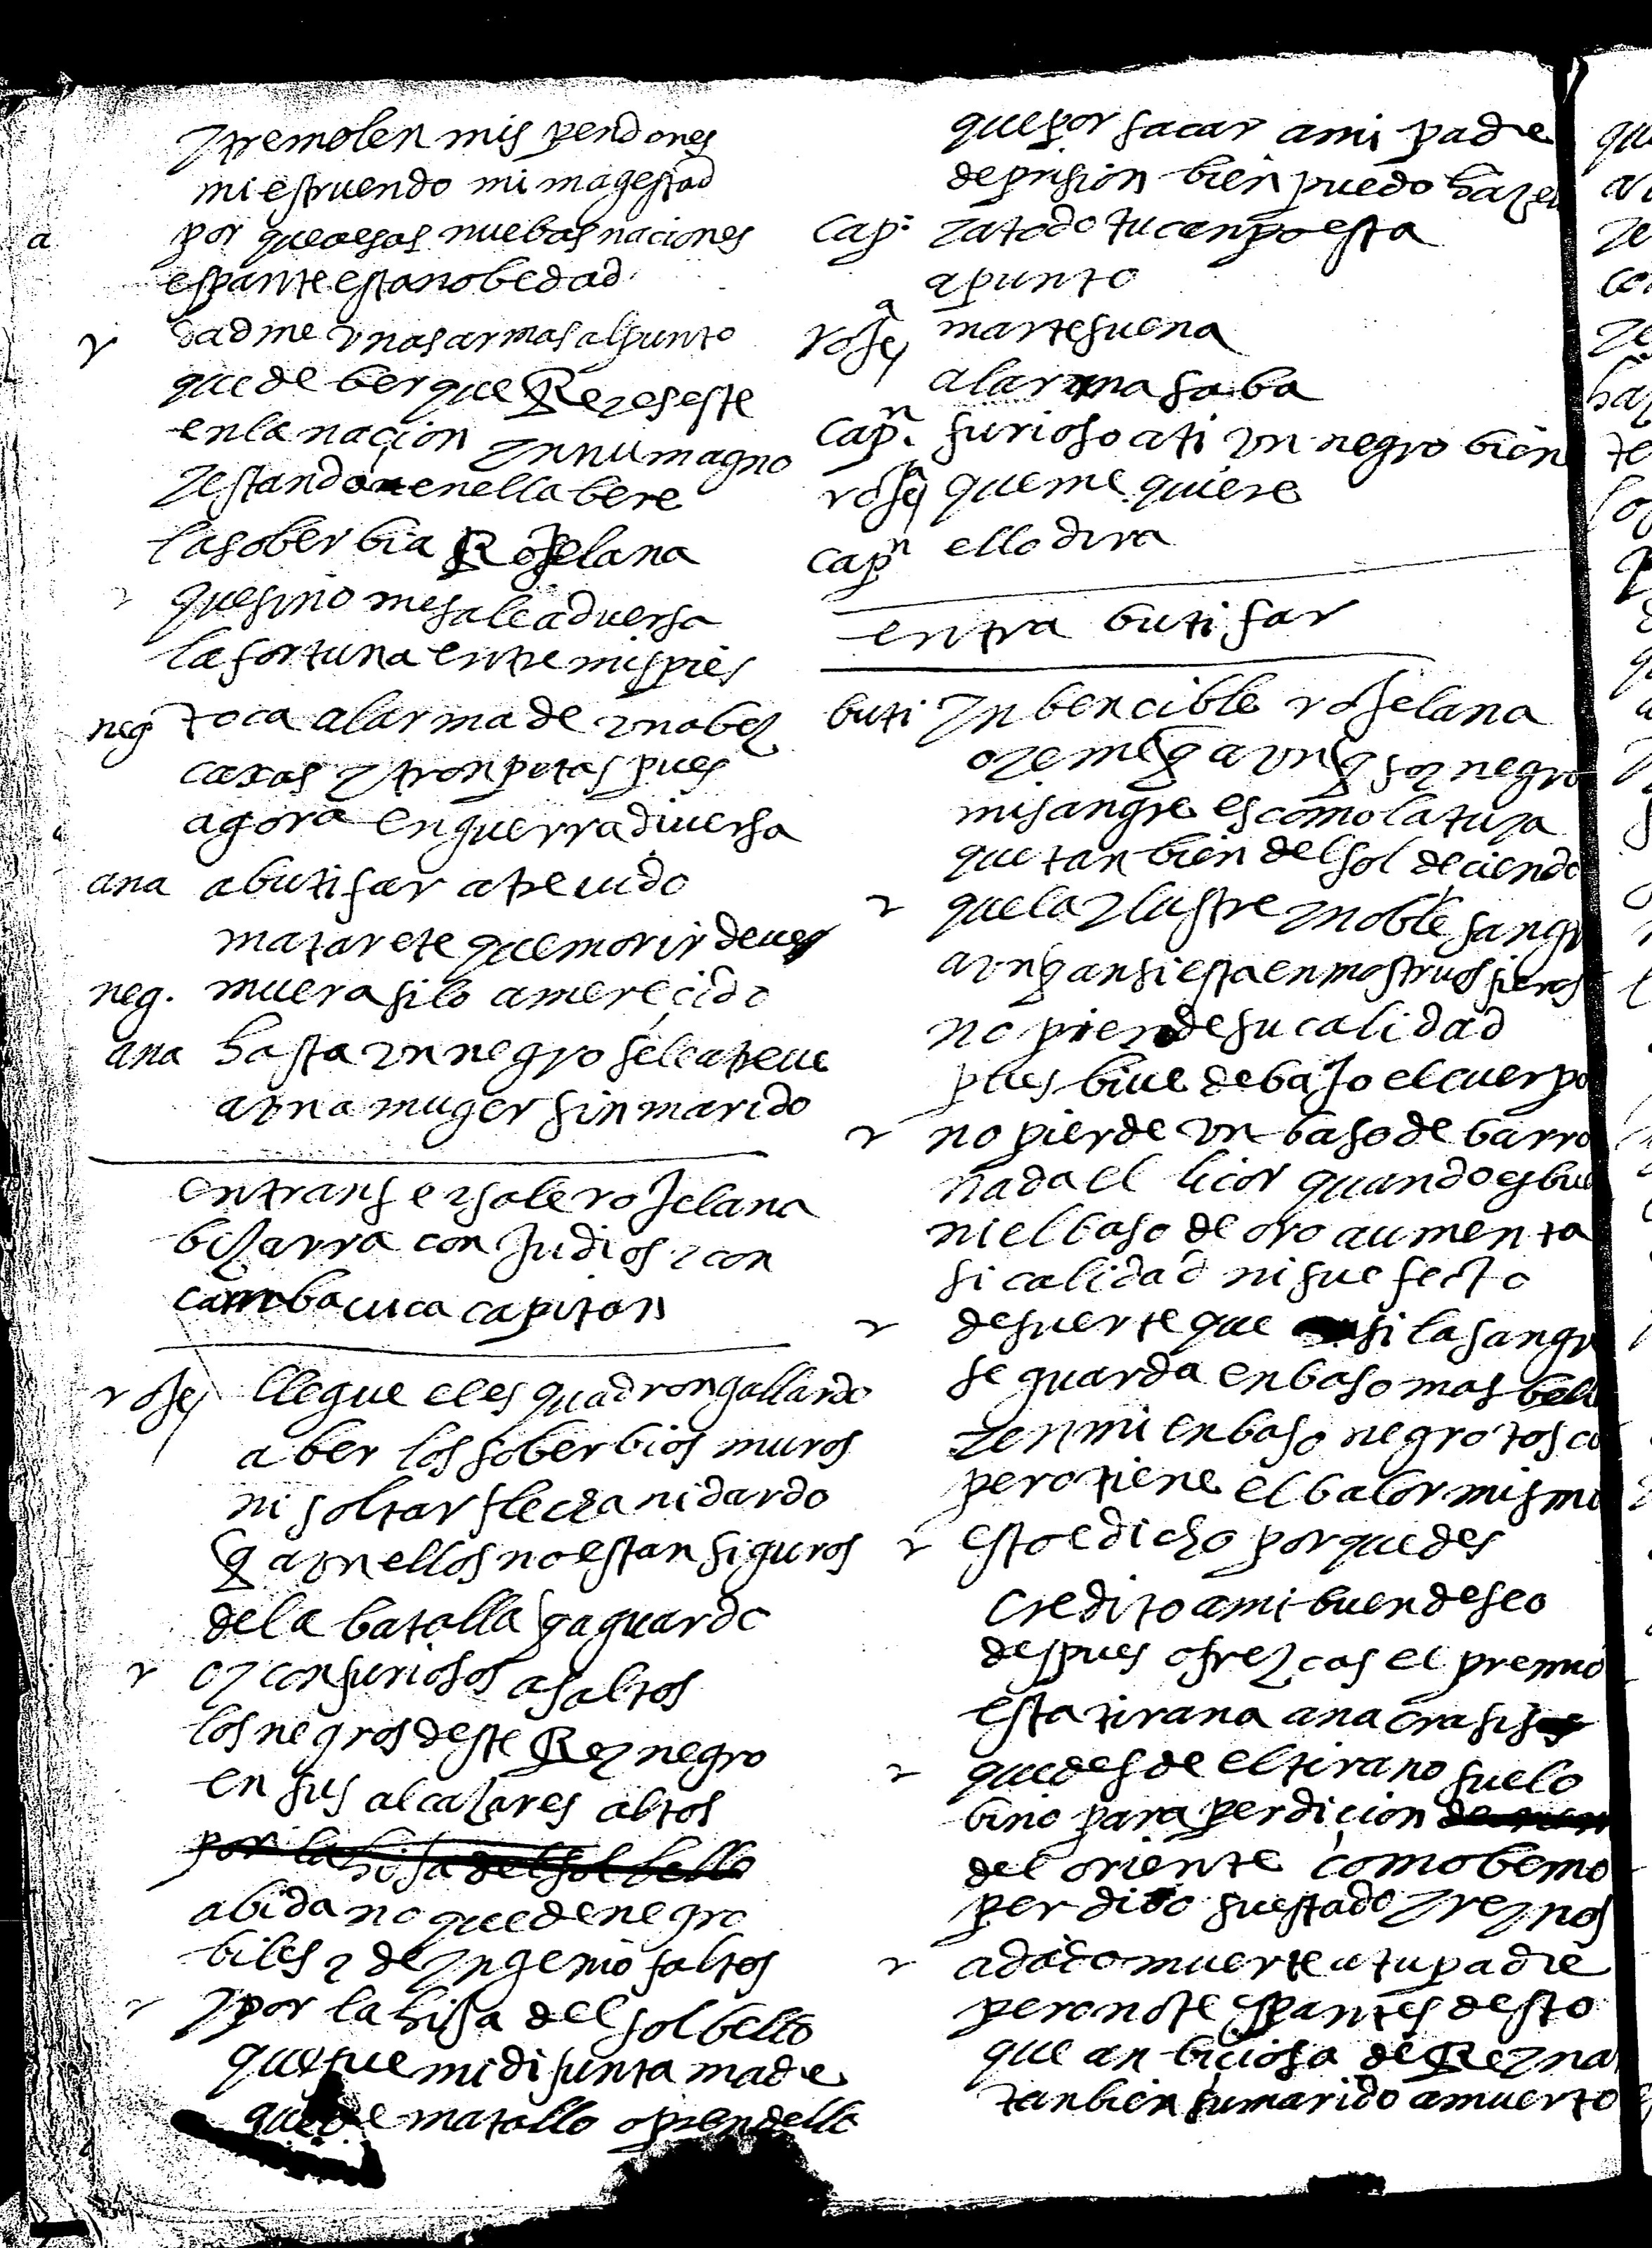 ytremolen mis pendones
mi estruendo mi magestad
por que a esas nuebas naciones
espante esta nobedad
dadme unas armas al punto
que de ber que Rey es este
en la naçion
y estando en ella bere
la soberbia Roselana
que si no me sale adversa
la fortuna entre mis pies
neg toca alarma de una bez
caxas y tronpetas pues
agora en guerra diversa
ana a butifar atrevido
matarete que morir deves
neg. muera si lo a mereçido
ana hasta un negro se le atreve
a una muger sin marido
entranse y sale roselana
bizarra con judios y con
cambacuca capitan
rosey llegue el esquadron gallardo
a ber los soberbios muros
ni soltar flecha ni dardo
q aun ellos no estan siguros
de la batalla q aguardo
r oy con furiosos asaltos
los negros deste Rey negro
en sus alcazares altos
por la hija del sol bello
abida no quede negro
biles y de yngenio faltos
r y por la hija del sol bello
que fue mi difunta madre
que e matallo o prendello
que por sacar a mi padre
de prision bien puedo hazer
cap. ya todo tu canpo esta
a punto
rosey marte suena
alarma saba
capn. furioso a ti un negro bien
rosey que me quiere
capn ello dira
entra butifar
buti ynbencible roselana
oyeme q aunq soy negro
mi sangre es como la tuya
que tanbien del sol deciendo
r que la ylustre y noble sangr
aunq ansi esta en mostruos fieros
no pierde su calidad
pues bive debajo el cuerpo
r no pierde un baso de barro
nada el licor quando es bue
ni el baso de oro aumenta
si calidad ni su efecto
r de suerte que si la sangr
se guarda en baso mas bello
y en mi en baso negro tosco
pero tiene el balor mismo
r esto e dicho por que des
credito a mi buen deseo
despues ofrezcas el premio
esta tirana ana
r que desde el tirano suelo
bino para perdiçion
del oriente como bemo
perdido su estado y reynos
r a dado muerte a tu padre
pero no te espantes desto
que anbiçiosa de Reyna
tanbien su marido a muerto